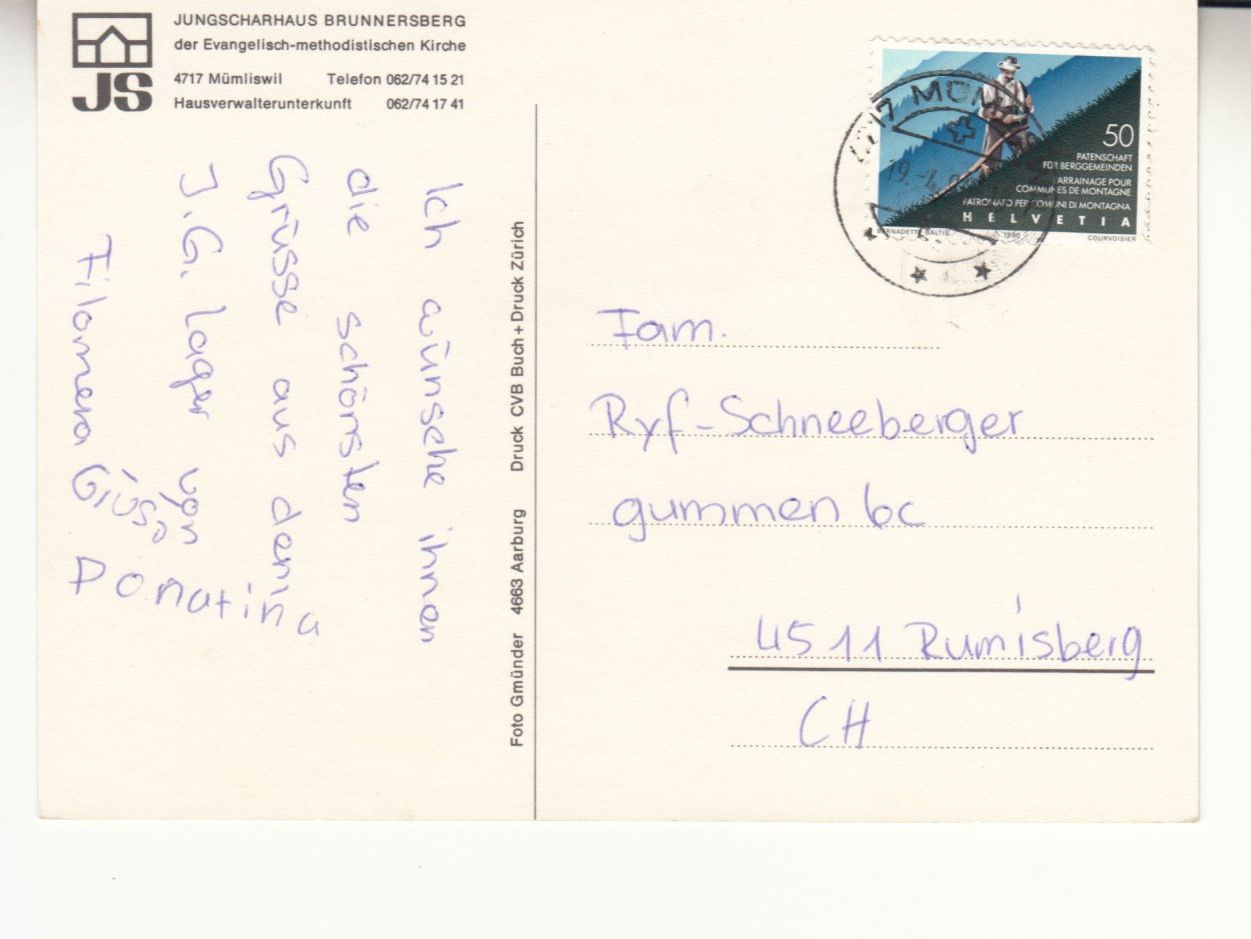 JUNGSCHARHAUS BRUNNERSBERG
der Evangelisch-methodistischen Kirche
4717 Mümliswil Telefon 062/74 15 21
Hausverwalterunterkunft 062/74 17 41
JS
Ich wünsche ihnen
die schönsten
Grüsse aus dem
J.G. lager von
Filomena Giusp
Donatina
Foto Gmünder 4663 Aarburg Druck CVB Buch+Druck Zürich
50
PATENSCHAFT
FÜR BERGGEMEINDEN
PARRAINAGE POUR
COMMUNES DE MONTAGNE
PATRONATO PER COMUNI DI MONTAGNA
HELVETIA
BERNADETTE BALTIS 1990 COURVOISIER
4717 MÜM
Fam.
Ryf-Schneeberger
gummen 6c
4511 Rumisberg
CH